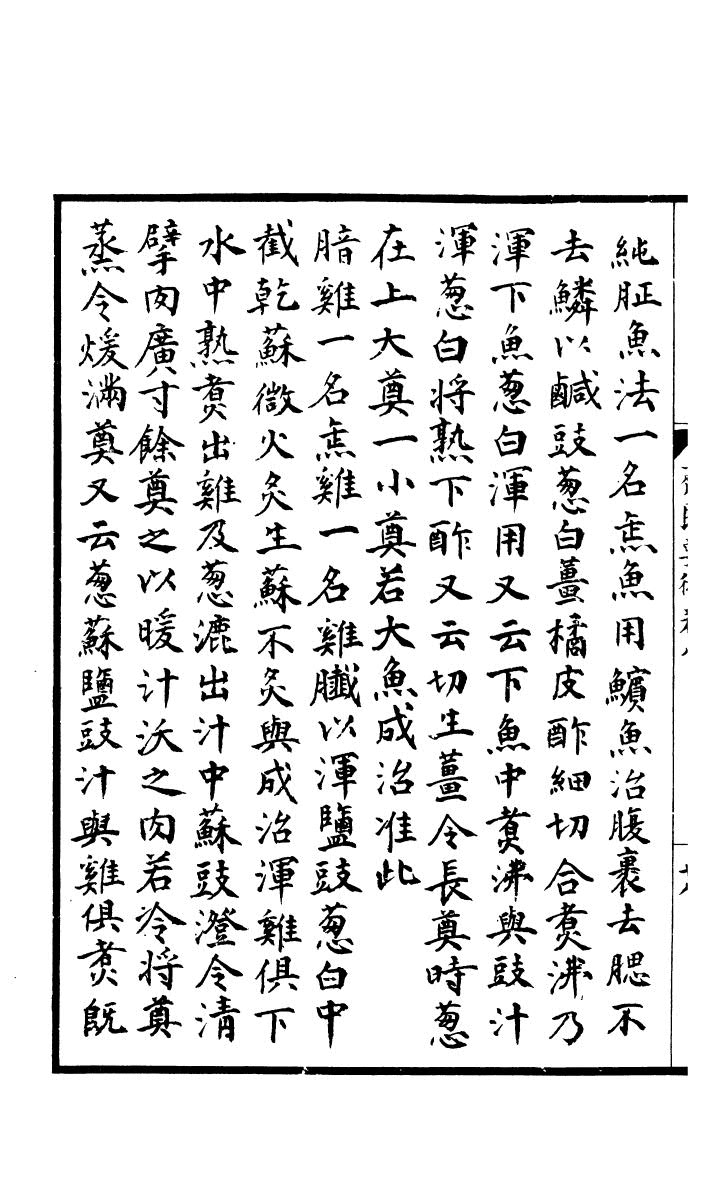 純脏魚法一名缹魚用鱝魚治腹裏去腮不
去鱗以鹹豉葱白薑橘皮酢細切合煑沸乃
渾下魚葱白渾用又云下魚中煑沸與豉汁
渾葱白将熟下酢又云切生薑令長奠時葱
在上大奠一小奠若大魚成治准此
腤雞一名缹雞一名雞臘以渾鹽豉葱白中
截乾蘇微火炙生蘇不炙與成治渾雞俱下
水中熟煑出雞及葱漉出汁中蘇豉澄令清
擘肉廣寸餘奠之以暖汁沃之肉若冷将奠
蒸令煖滿奠又云葱蘇鹽豉汁與雞俱煑旣